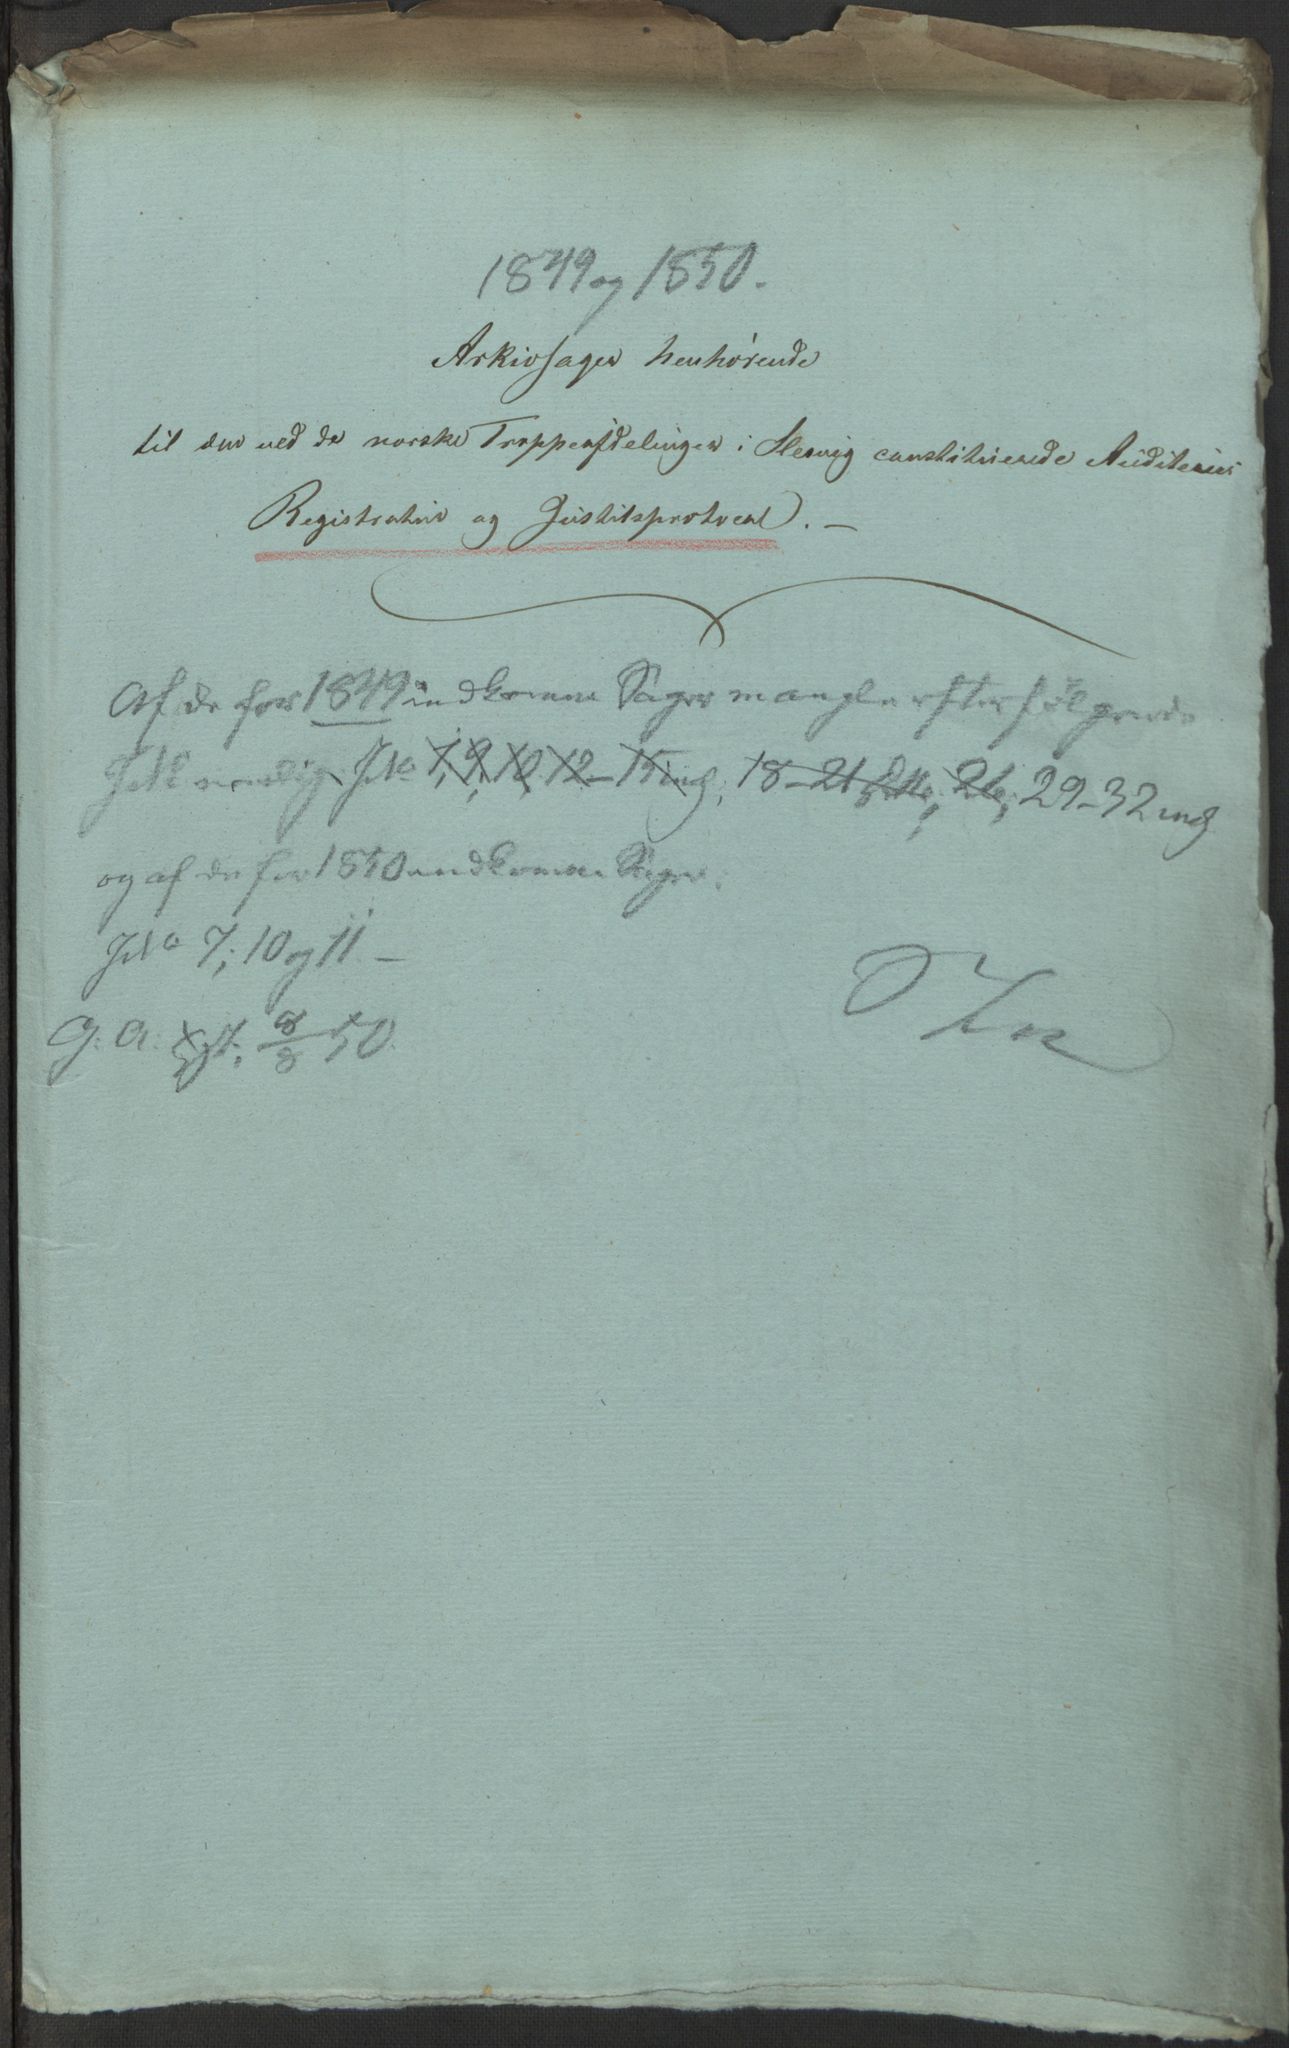 1849 og 1850.
Arkivsager henhørende
til den ved de norske Troppeafdelinger i Slesvig constituerede Auditeurs
Registratur og Justitsprotocol. —
Af de for 1849 indkomne Sager mangler efterfølgende
nemlig JNo 7, 9, 10, 12 – 15 incl; 18 – 21 26; 29 – 32 incl
og af de for 1850 indkomne Sager.
JNo 7; 10 og 11 –
G. A. 8/8 50.